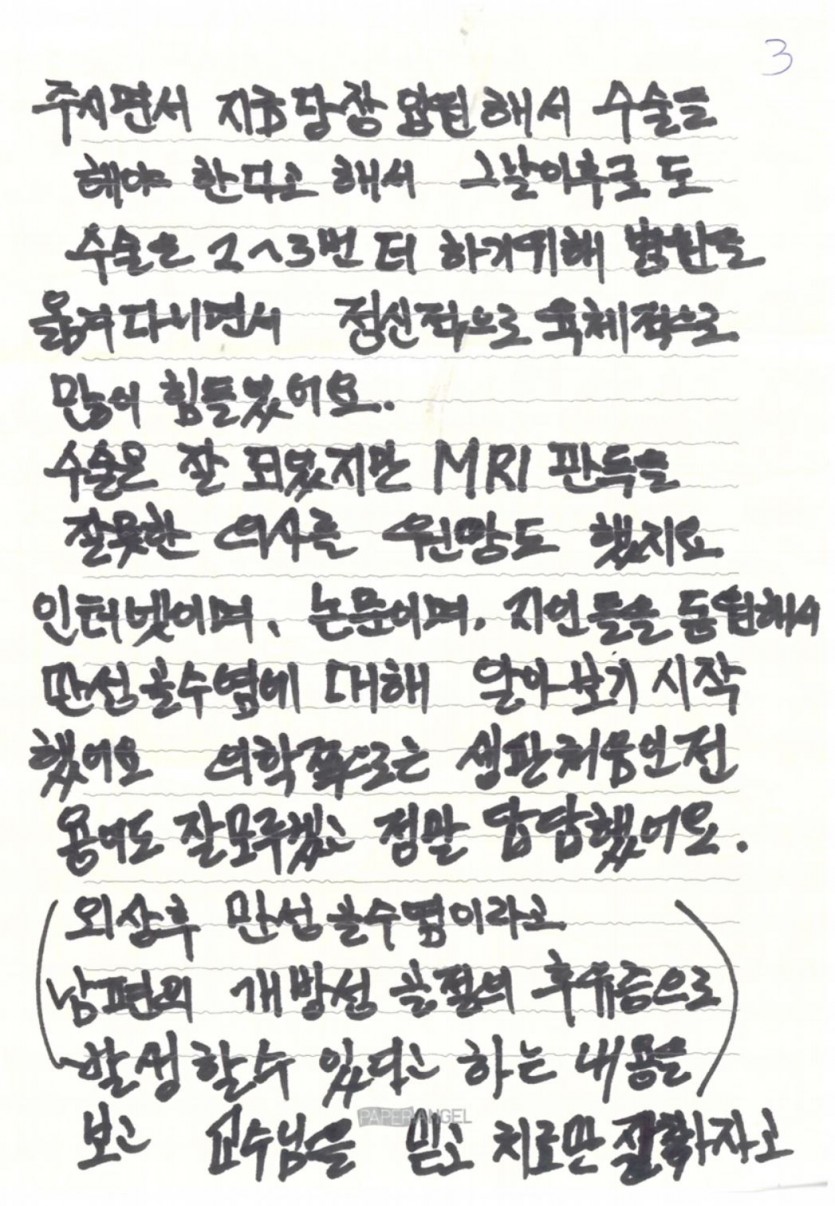 3
주시면서 지금당장 입원해서 수술을
해야 한다고 해서 그날이후로도
수술은 2~3번 더 하기위해 병원을
옮겨다니면서 정신적으로 육체적으로
많이 힘들었어요.
수술은 잘 되었지만 MRI 판독을
잘못한 의사를 원망도 했지요
인터넷이며, 논문이며, 지인들을 동원해서
만성골수염에 대해 알아보기 시작
했어요 의학쪽으로는 생판처음인전
용어도 잘모르겠고 정말 답답했어요.
(외상후 만성골수염이라고
남편의 개방성 골절의 후유증으로
발생할수 있다고 하는 내용을)
보고 교수님을 믿고 치료만 잘하자고
PAPER ANGEL